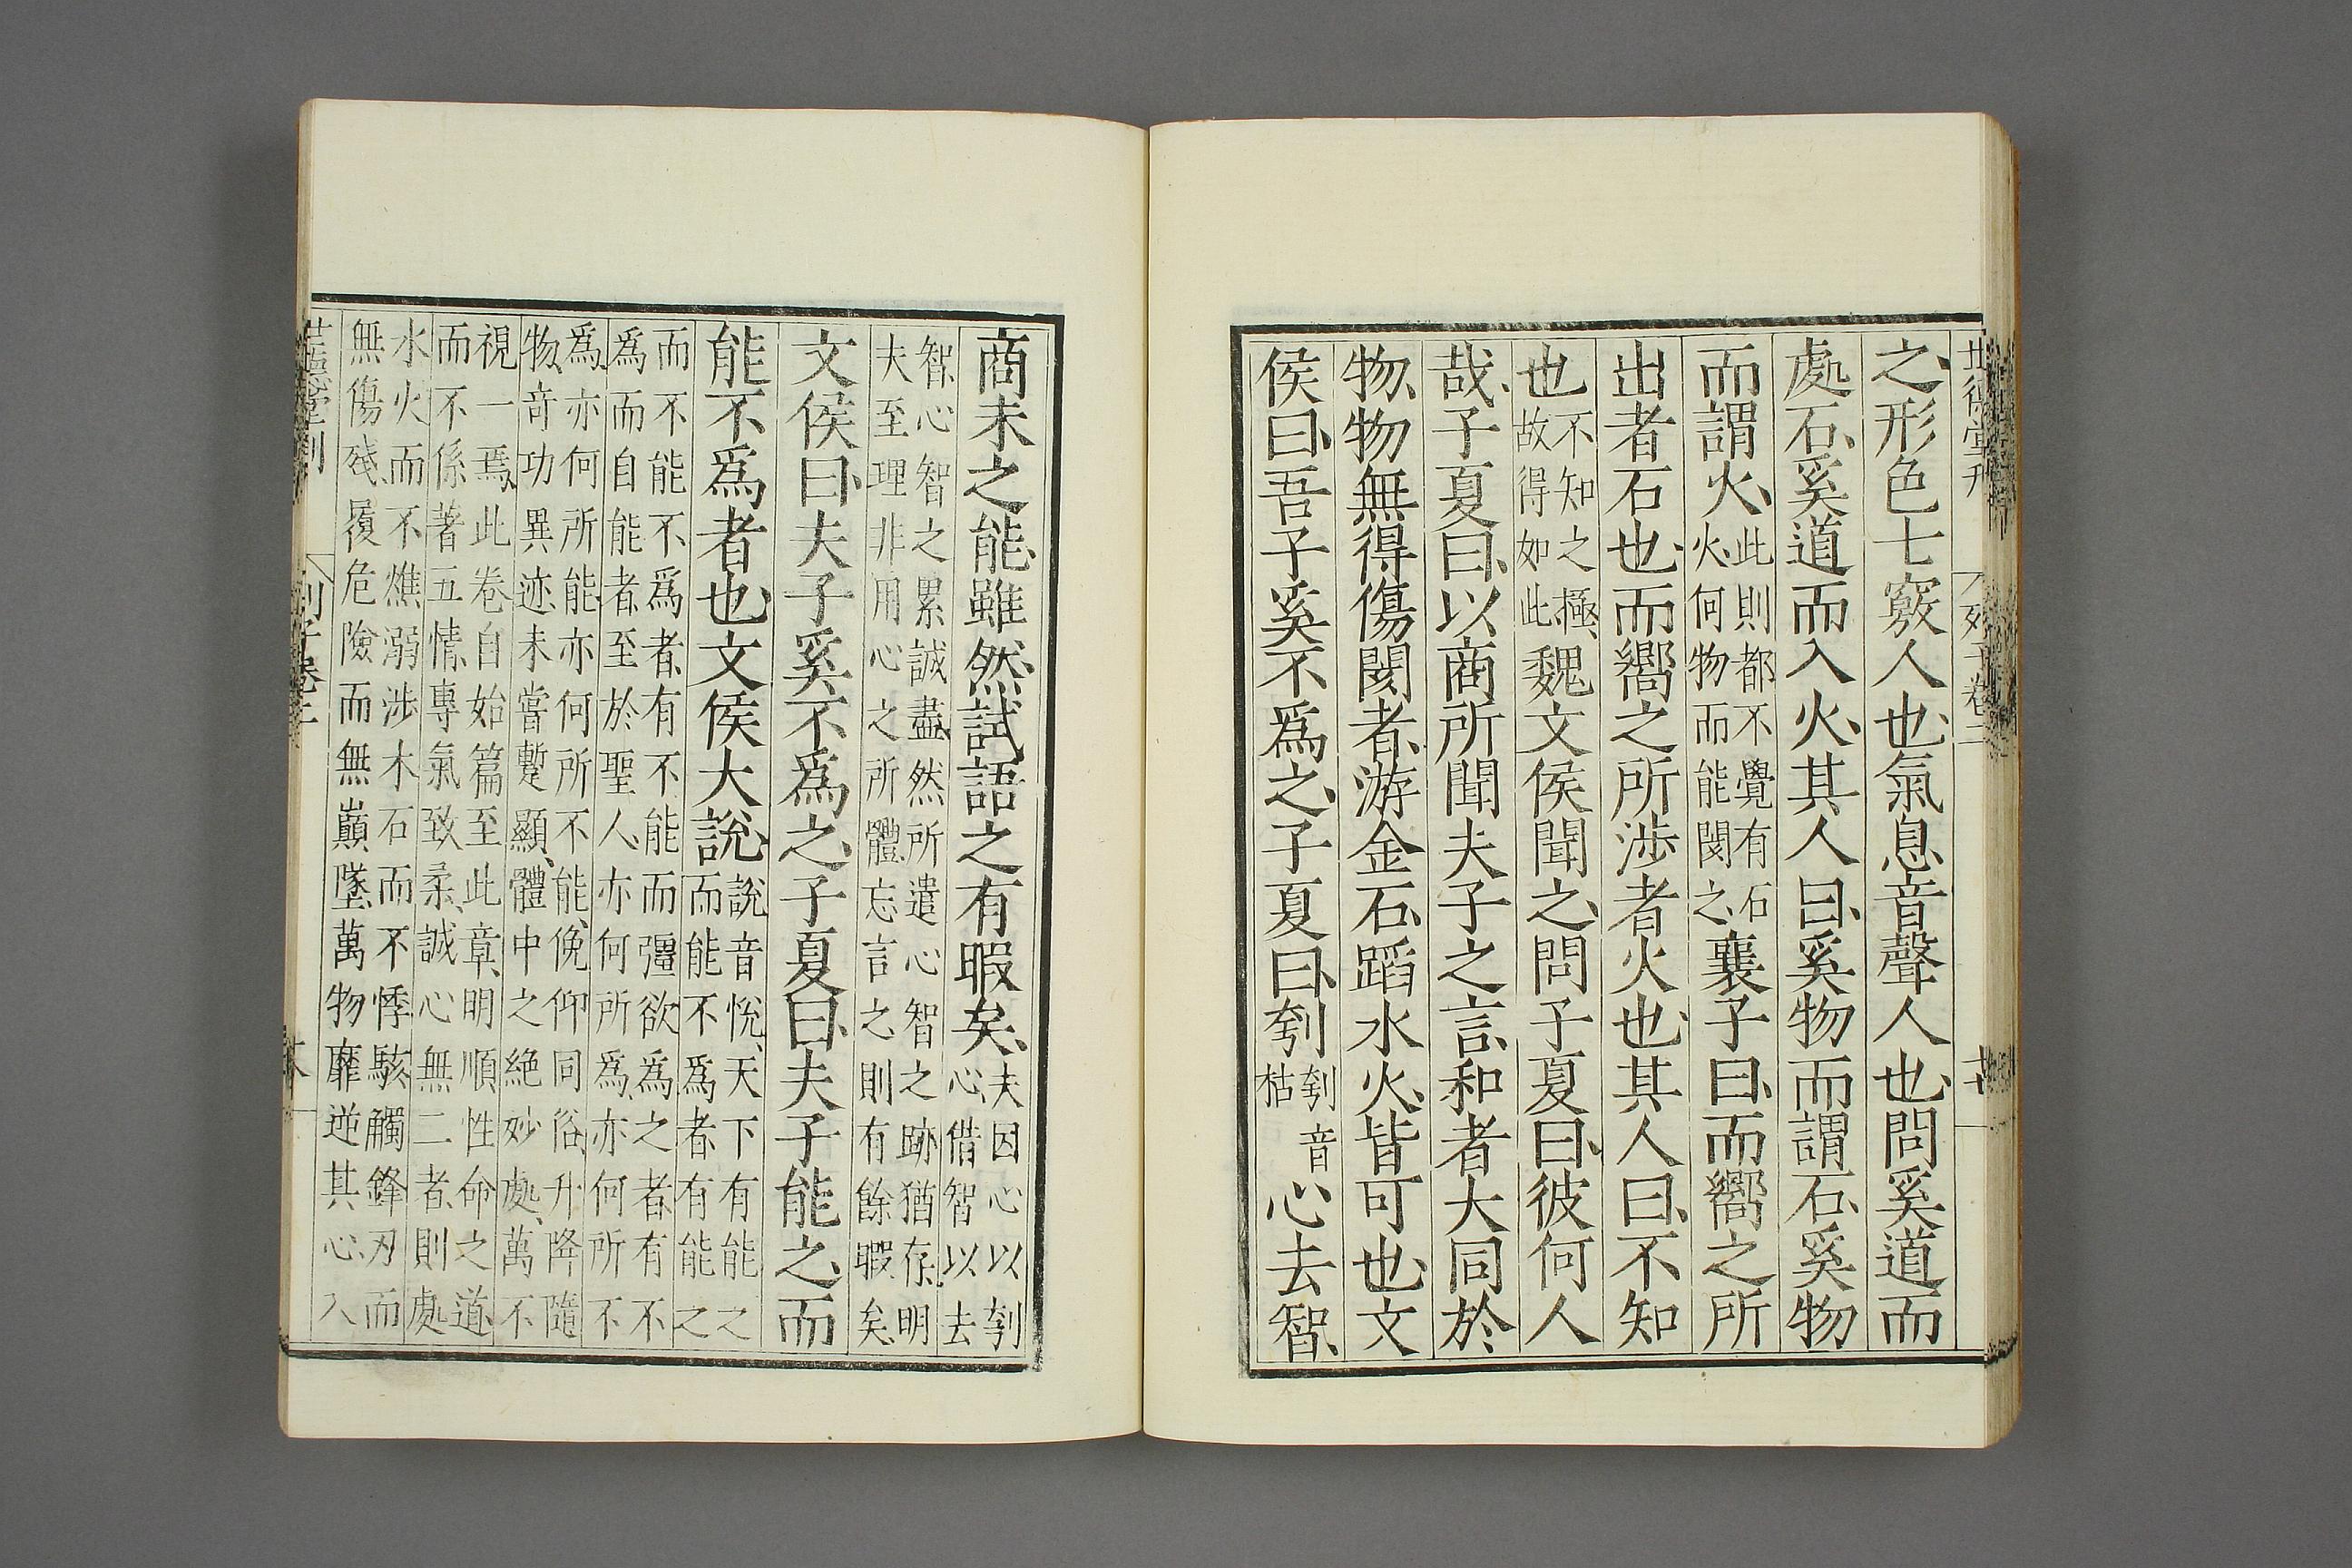 之形色七竅人也氣息音聲人也問奚道而
處石奚道而入火其人曰奚物而謂石奚物
而謂火此則都不覺有石火何物而能閡之襄子曰而嚮之所
出者石也而嚮之所涉者火也其人曰不知
也不知之極故得如此魏文侯聞之問子夏曰彼何人
哉子夏曰以商所聞夫子之言和者大同於
物物無得傷閡者游金石蹈水火皆可也文
侯曰吾子奚不為之子夏曰刳刳音枯心去智
商未之能雖然試語之有暇矣夫因心以刳心借智以去
智心智之累誠盡然所遣心智之跡猶存明夫至理非用心之所體忘言之則有餘暇矣
文侯曰夫子奚不為之子夏曰夫子能之而
能不為者也文侯大說說音悅天下有能之而能不為者有能之
而不能不為者有不能而彊欲為之者有不為而自能者至於聖人亦何所為亦何所不
為亦何所能亦何所不能俛仰同俗升降隨物奇功異迹未嘗蹔顯體中之絕妙處萬不
視一焉此卷自始篇至此章明順性命之道而不係著五情專氣致柔誠心無二者則處
水火而不燋溺涉木石而不悸駭觸鋒刃而無傷殘履危險而無巔墜萬物靡逆其心入